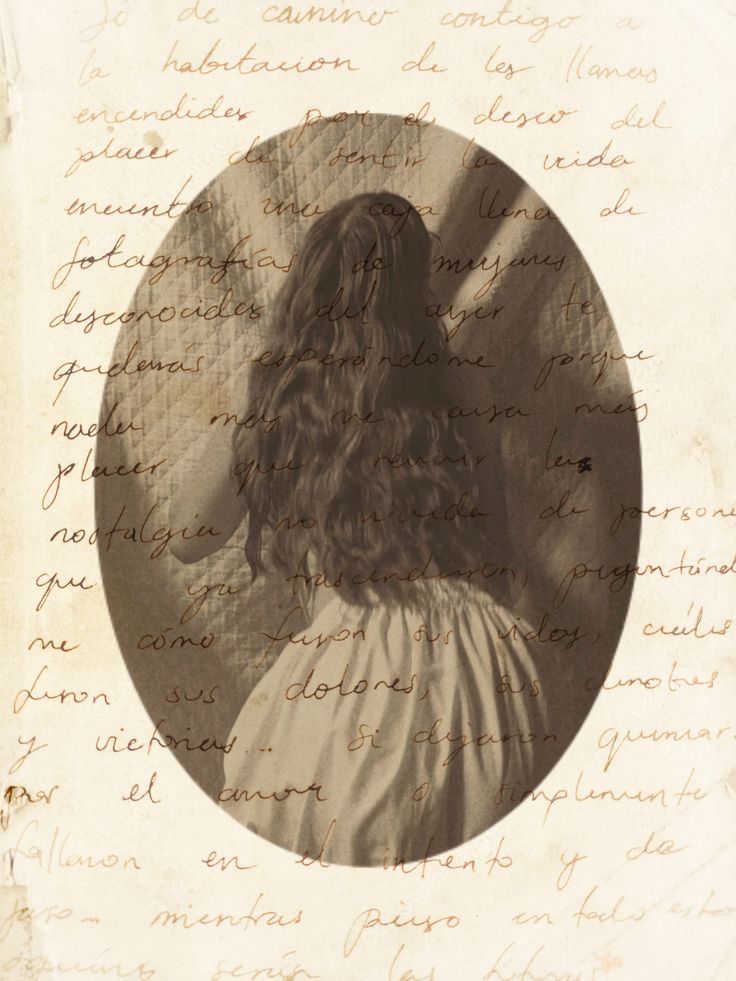 de camino contigo a
la habitacion de les llamas
encendides por el deseo del
placer de sentir la vida
encuentro una caja llena de
fotografías de mujeres
desconocides del ayer te
quedarás esperándome porque
nada más me causa más
placer que revivir la
nostalgia no vivida de persona
que ya trascendieron, preguntánd
me cómo fueron sus vidas, cuáles
fueron sus dolores, sus
y victorias... si dejaron quemar
por el amor o simplemente
fallaron en el intento y
mientras pienso en todo esto
serán las